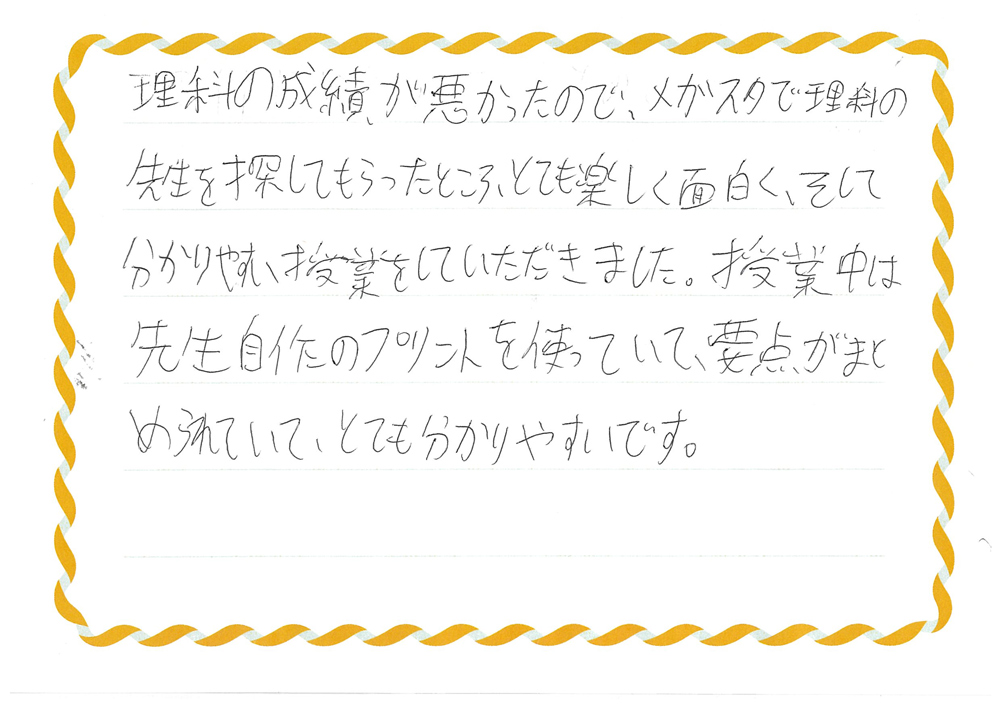 理科の成績が悪かったので、メガスタで理科の
先生を探してもらったところ、とても楽しく面白く、そして
分かりやすい授業をしていただきました。授業中は
先生自作のプリントを使っていて、要点がまと
められていて、とても分かりやすいです。